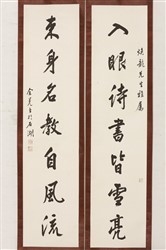 入眼詩書皆雪亮
龍先生雅屬
束身名教自風流